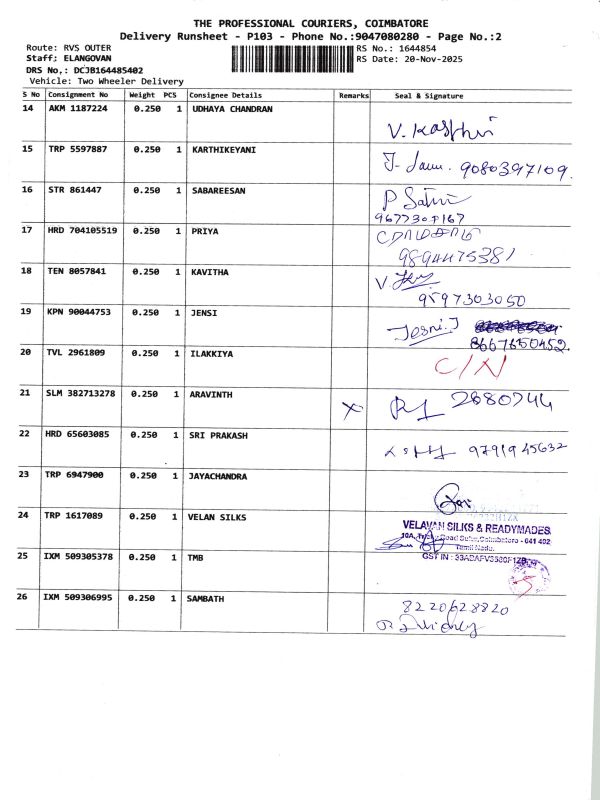 THE PROFESSIONAL COURIERS, COIMBATORE
Delivery Runsheet - P103 - Phone No.:9047080280 - Page No.:2
Route: RVS OUTER
RS No.: 1644854
Staff; ELANGOVAN
RS Date: 20-Nov-2025
DRS No,: DCJB164485402
Vehicle: Two Wheeler Delivery
S No Consignment No Weight PCS Consignee Details Remarks Seal & Signature
14 AKM 1187224 0.250 1 UDHAYA CHANDRAN
15 TRP 5597887 0.250 1 KARTHIKEYANI 9080397109
16 STR 861447 0.250 1 SABAREESAN
17 HRD 704105519 0.250 1 PRIYA
9894475381
18 TEN 8057841 0.250 1 KAVITHA
9597303050
19 KPN 90044753 0.250 1 JENSI Jesni.J
8667650452
20 TVL 2961809 0.250 1 ILAKKIYA C/N
21 SLM 382713278 0.250 1 ARAVINTH X
22 HRD 65603085 0.250 1 SRI PRAKASH 9791945632
23 TRP 6947900 0.250 1 JAYACHANDRA
24 TRP 1617089 0.250 1 VELAN SILKS
VELAVAN SILKS & READYMADES
Coimbatore - 641 402
Tamil Nadu.
25 IXM 509305378 0.250 1 TMB
26 IXM 509306995 0.250 1 SAMBATH 8220628820